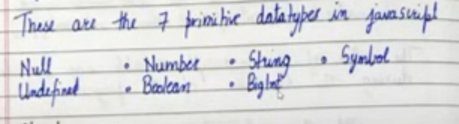 These are the 7 primitive datatypes in javascript
Null • Number • String • Symbol
Undefined • Boolean • BigInt